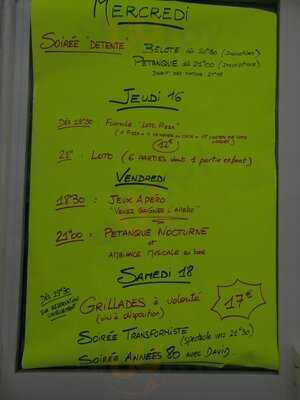 MERCREDI
SOIRÉE "DETENTE" BELOTE dès 20H30 (Inscriptions)
PETANQUE dès 21H00 (Inscriptions)
JEUDI 16
Dès 19H30 : Formule "LOTO PIZZA"
12€
21H : LOTO (6 PARTIES dont 1 partie enfant)
VENDREDI
18H30 : JEUX APERO
"VENEZ GAGNER L'APERO"
21H00 : PETANQUE NOCTURNE
et
AMBIANCE MUSICALE au bar
SAMEDI 18
Dès 19H30
SUR RESERVATION
UNIQUEMENT
GRILLADES à volonté
(vin à disposition)
17€
SOIRÉE TRANSFORMISTE (spectacle vers 21H30)
SOIRÉE ANNÉES 80 AVEC DAVID